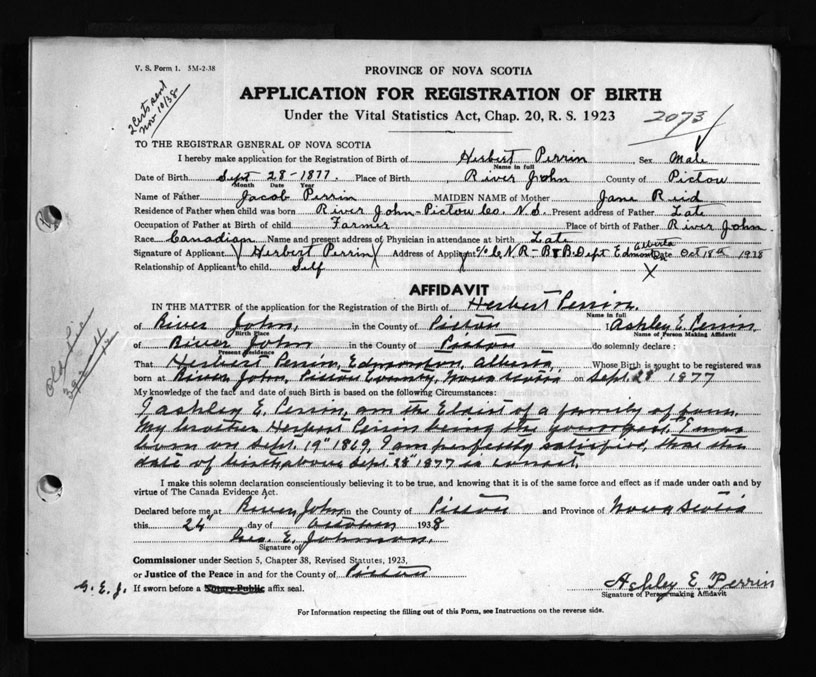 V. S. Form 1. 5M-2-38
PROVINCE OF NOVA SCOTIA
2 Certs send
Nov 10/38
APPLICATION FOR REGISTRATION OF BIRTH
Under the Vital Statistics Act, Chap. 20, R. S. 1923
2073
TO THE REGISTRAR GENERAL OF NOVA SCOTIA
I hereby make application for the Registration of Birth of Herbert Perrin Sex Male
Name in full
Date of Birth Sept 28-1877. Place of Birth River John County of Pictou
Month Date Year
Name of Father Jacob Perrin MAIDEN NAME of Mother Jane Reid
Residence of Father when child was born River John-Pictou Co. N.S. Present address of Father Late
Occupation of Father at Birth of child Farmer Place of birth of Father River John.
Race Canadian Name and present address of Physician in attendance at birth Late
Signature of Applicant Herbert Perrin Address of Applicant c/o C.N.R-B&B. Dept Edmonton Alberta Date Oct 18th 1938
Relationship of Applicant to child Self X
AFFIDAVIT
IN THE MATTER of the application for the Registration of the Birth of Herbert Perrin.
Name in full
of River John, in the County of Pictou I Ashley E. Perrin,
Birth Place Name of Person Making Affidavit
of River John in the County of Pictou do solemnly declare:
Present Residence
That Herbert Perrin, Edmonton, Alberta, Whose Birth is sought to be registered was
born at River John, Pictou County, Nova Scotia on Sept. 28 1877
My knowledge of the fact and date of such Birth is based on the following Circumstances:
I Ashley E. Perrin, am the Eldest of a family of four.
My brother Herbert Perrin being the youngest. I was
born on Sept. 19" 1869, I am perfectly satisfied, that the
date of birth above Sept. 28" 1877 is correct.
I make this solemn declaration conscientiously believing it to be true, and knowing that it is of the same force and effect as if made under oath and by
virtue of The Canada Evidence Act.
Declared before me at River John in the County of Pictou and Province of Nova Scotia
this 24" day of October 1938
Geo. E. Johnson.
Signature of
Commissioner under Section 5, Chapter 38, Revised Statutes, 1923.
or Justice of the Peace in and for the County of Pictou
G. E. J. If sworn before a Notary Public affix seal.
Ashley E. Perrin
Signature of Person making Affidavit
For Information respecting the filling out of this Form, see Instructions on the reverse side.